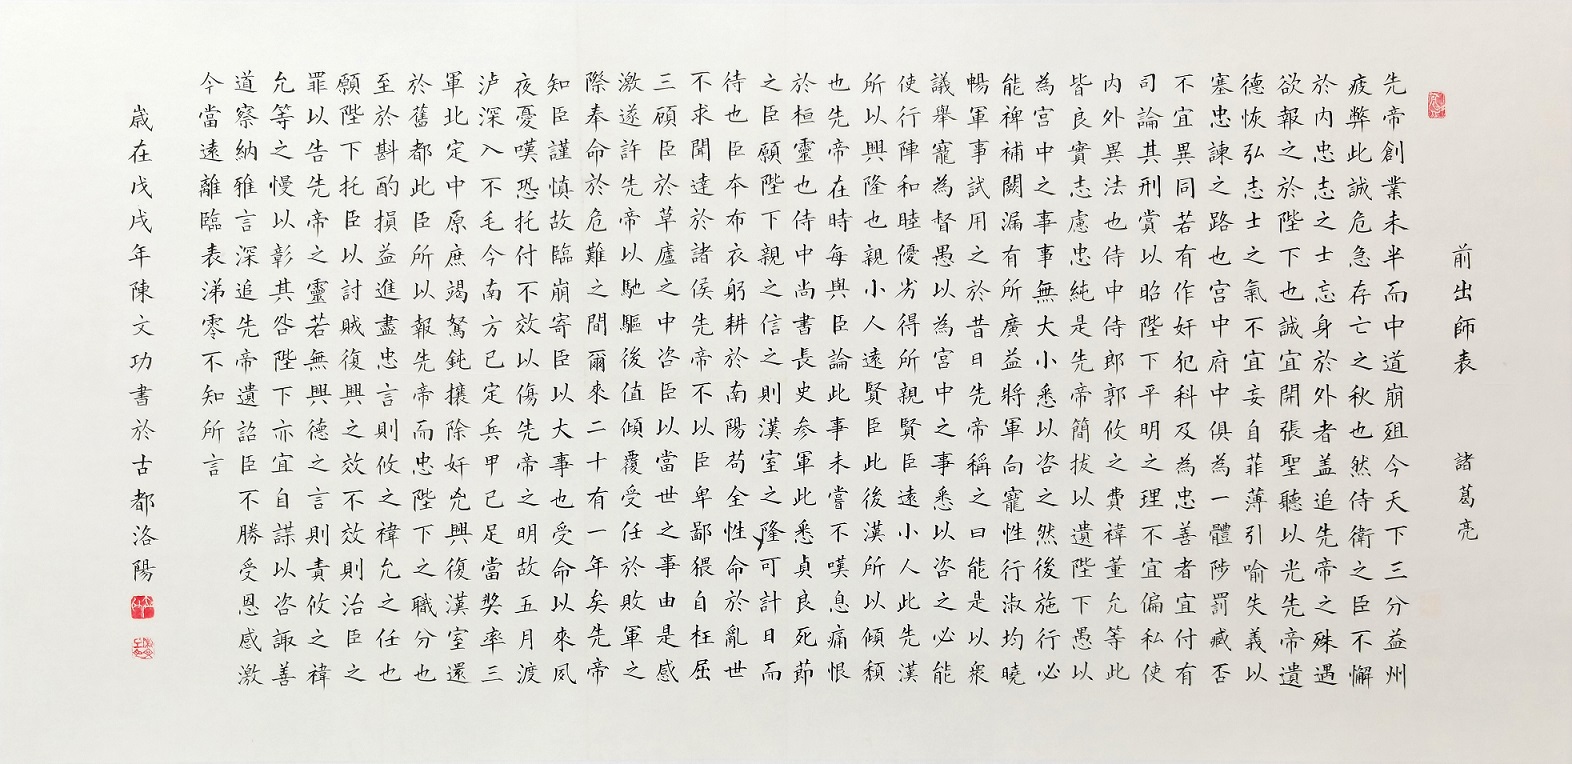 前出師表　諸葛亮
先帝創業未半而中道崩殂今天下三分益州
疲弊此誠危急存亡之秋也然侍衛之臣不懈
於內忠志之士忘身於外者盖追先帝之殊遇
欲報之於陛下也誠宜開張聖聽以光先帝遺
德恢弘志士之氣不宜妄自菲薄引喻失義以
塞忠諫之路也宮中府中俱為一體陟罰臧否
不宜異同若有作奸犯科及為忠善者宜付有
司論其刑賞以昭陛下平明之理不宜偏私使
內外異法也侍中侍郎郭攸之費禕董允等此
皆良實志慮忠純是先帝簡拔以遺陛下愚以
為宮中之事事無大小悉以咨之然後施行必
能裨補闕漏有所廣益將軍向寵性行淑均曉
暢軍事試用之於昔日先帝稱之曰能是以衆
議舉寵為督愚以為宮中之事悉以咨之必能
使行陣和睦優劣得所親賢臣遠小人此先漢
所以興隆也親小人遠賢臣此後漢所以傾頹
也先帝在時每與臣論此事未嘗不嘆息痛恨
於桓靈也侍中尚書長史参軍此悉貞良死節
之臣願陛下親之信之則漢室之隆可計日而
待也臣本布衣躬耕於南陽苟全性命於亂世
不求聞達於諸侯先帝不以臣卑鄙猥自枉屈
三顧臣於草廬之中咨臣以當世之事由是感
激遂許先帝以馳驅後值傾覆受任於敗軍之
際奉命於危難之間爾來二十有一年矣先帝
知臣謹慎故臨崩寄臣以大事也受命以來夙
夜憂嘆恐托付不效以傷先帝之明故五月渡
泸深入不毛今南方已定兵甲已足當奬率三
軍北定中原庶竭駑鈍攘除奸兇興復漢室還
於舊都此臣所以報先帝而忠陛下之職分也
至於斟酌損益進盡忠言則攸之禕允之任也
願陛下托臣以討賊復興之效不效則治臣之
罪以告先帝之靈若無興德之言則責攸之禕
允等之慢以彰其咎陛下亦宜自謀以咨諏善
道察納雅言深追先帝遺詔臣不勝受恩感激
今當遠離臨表涕零不知所言
歲在戊戌年陳文功書於古都洛陽